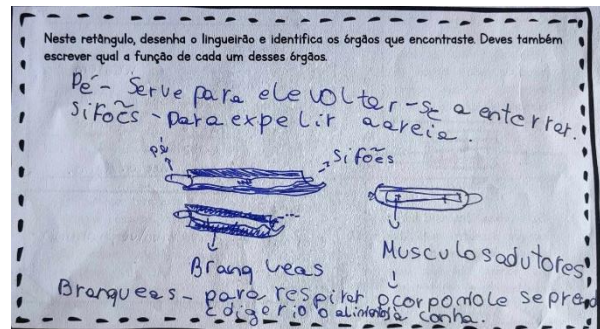 Neste retângulo, desenha o lingueirão e identifica os órgãos que encontraste. Deves também
escrever qual a função de cada um desses órgãos.
Pé - Serve para ele voltar-se a enterrar.
Sifoẽs - para expelir a areia.
pé
Sifoẽs
Branqueas
Musculos adutores
Branqueas - para respirar
e digerio o alimento
o corpo mole se prend
a conha.